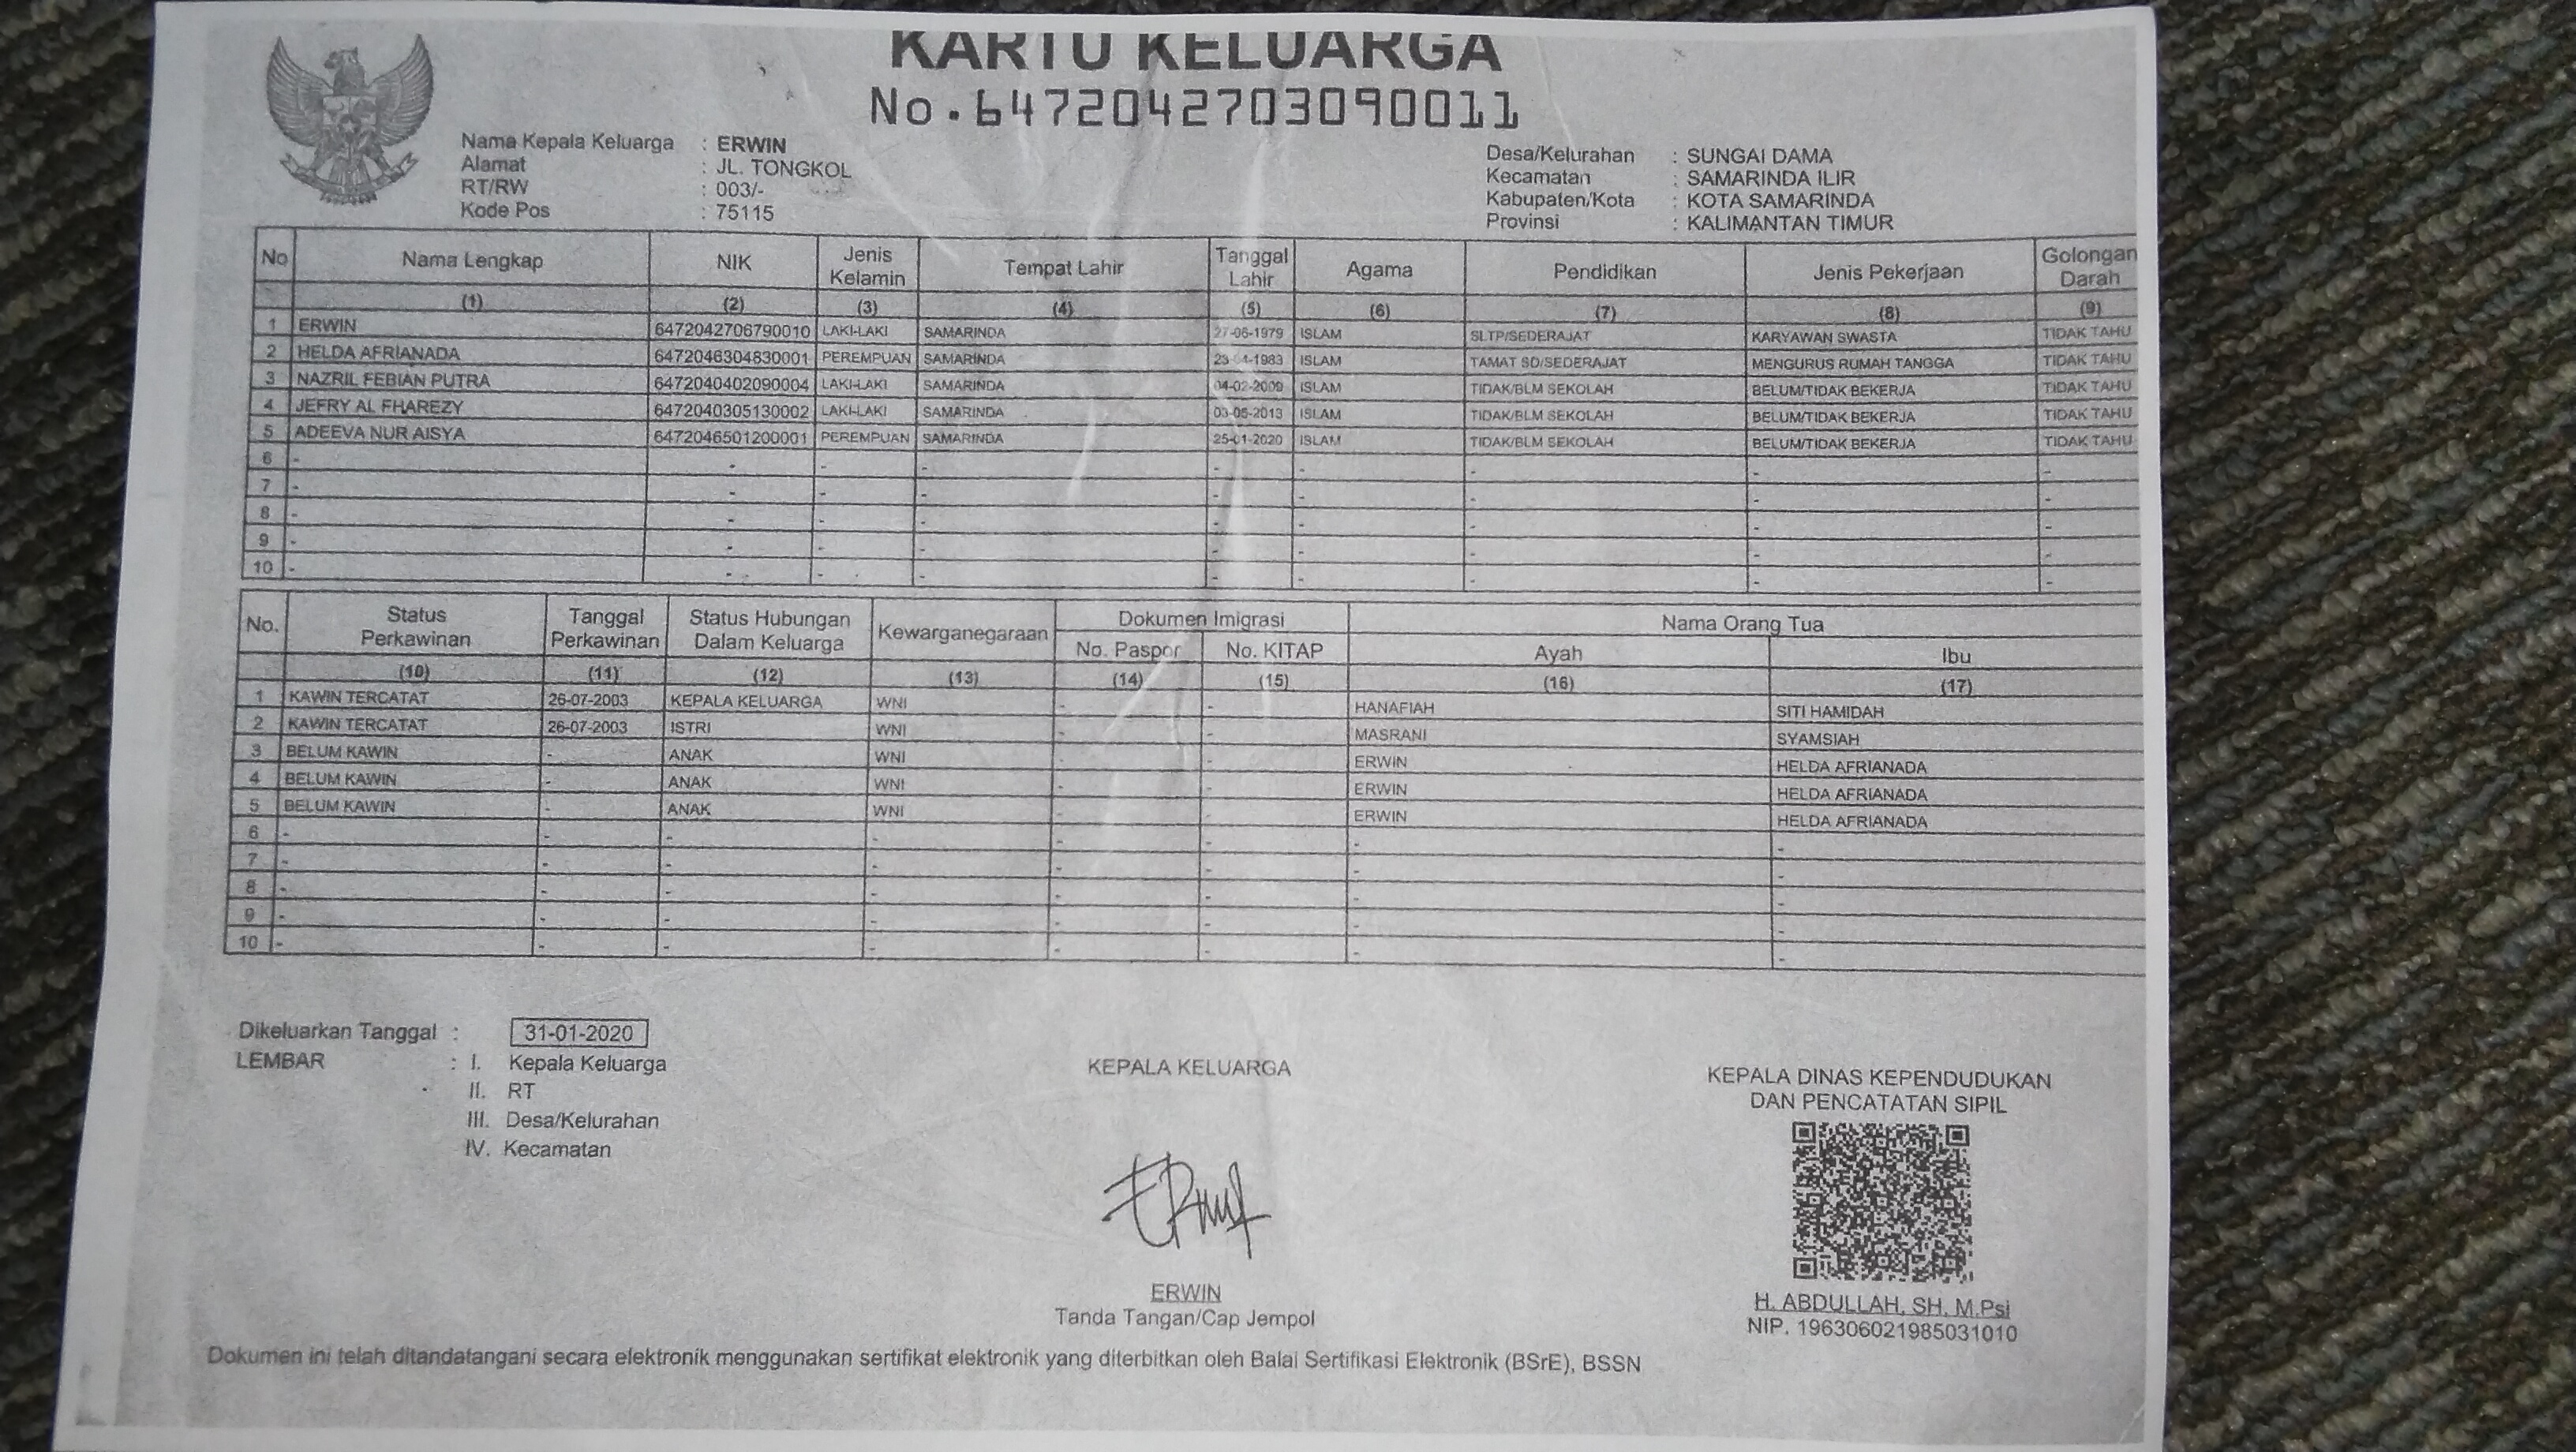 KARTU KELUARGA
No.6472042703090011
Nama Kepala Keluarga : ERWIN
Alamat : JL. TONGKOL
RT/RW : 003/-
Kode Pos : 75115
Desa/Kelurahan : SUNGAI DAMA
Kecamatan : SAMARINDA ILIR
Kabupaten/Kota : KOTA SAMARINDA
Provinsi : KALIMANTAN TIMUR
No Nama Lengkap NIK Jenis Kelamin Tempat Lahir Tanggal Lahir Agama Pendidikan Jenis Pekerjaan Golongan Darah
(1) (2) (3) (4) (5) (6) (7) (8) (9)
1 ERWIN 6472042706790010 LAKI-LAKI SAMARINDA 27-06-1979 ISLAM SLTP/SEDERAJAT KARYAWAN SWASTA TIDAK TAHU
2 HELDA AFRIANADA 6472046304830001 PEREMPUAN SAMARINDA 23-04-1983 ISLAM TAMAT SD/SEDERAJAT MENGURUS RUMAH TANGGA TIDAK TAHU
3 NAZRIL FEBIAN PUTRA 6472040402090004 LAKI-LAKI SAMARINDA 04-02-2009 ISLAM TIDAK/BLM SEKOLAH BELUM/TIDAK BEKERJA TIDAK TAHU
4 JEFRY AL FHAREZY 6472040305130002 LAKI-LAKI SAMARINDA 03-05-2013 ISLAM TIDAK/BLM SEKOLAH BELUM/TIDAK BEKERJA TIDAK TAHU
5 ADEEVA NUR AISYA 6472046501200001 PEREMPUAN SAMARINDA 25-01-2020 ISLAM TIDAK/BLM SEKOLAH BELUM/TIDAK BEKERJA TIDAK TAHU
6 - - - - - - - - -
7 - - - - - - - - -
8 - - - - - - - - -
9 - - - - - - - - -
10 - - - - - - - - -
No. Status Perkawinan Tanggal Perkawinan Status Hubungan Dalam Keluarga Kewarganegaraan Dokumen Imigrasi Nama Orang Tua
No. Paspor No. KITAP Ayah Ibu
(10) (11) (12) (13) (14) (15) (16) (17)
1 KAWIN TERCATAT 26-07-2003 KEPALA KELUARGA WNI - - HANAFIAH SITI HAMIDAH
2 KAWIN TERCATAT 26-07-2003 ISTRI WNI - - MASRANI SYAMSIAH
3 BELUM KAWIN - ANAK WNI - - ERWIN HELDA AFRIANADA
4 BELUM KAWIN - ANAK WNI - - ERWIN HELDA AFRIANADA
5 BELUM KAWIN - ANAK WNI - - ERWIN HELDA AFRIANADA
6 - - - - - - - -
7 - - - - - - - -
8 - - - - - - - -
9 - - - - - - - -
10 - - - - - - - -
Dikeluarkan Tanggal : 31-01-2020
LEMBAR : I. Kepala Keluarga
II. RT
III. Desa/Kelurahan
IV. Kecamatan
KEPALA KELUARGA
ERWIN
Tanda Tangan/Cap Jempol
KEPALA DINAS KEPENDUDUKAN
DAN PENCATATAN SIPIL
H. ABDULLAH, SH, M.Psi
NIP. 196306021985031010
Dokumen ini telah ditandatangani secara elektronik menggunakan sertifikat elektronik yang diterbitkan oleh Balai Sertifikasi Elektronik (BSrE), BSSN